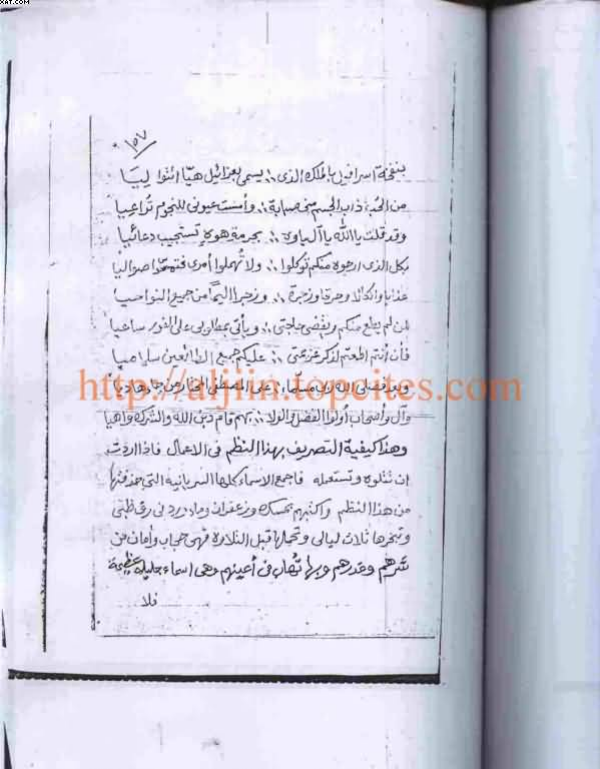 XAT.COM
١٥٧
بنفخة اسرافيل بالملك الذى ∴ يسمى بعزائيل هيا ائتوا ليا
من الحب ذاب الجسم منى صبابة ∴ وأمست عيونى للنجوم تراعيا
وقد قلت يا الله يا آل ياوه ∴ بحرمة هوه تستجيب دعائيا
بكل الذى ارجوه منكم توكلوا ∴ ولا تهملوا أمرى
عذابا وانكالا وحرقا وزجرة ∴ وزجرا اليما من جميع النواصيا
لمن لم يطع منكم ويقضى حاجتى ∴ ويأتى بمطلوبى على الفور ساعيا
فأن أنتم اطعتم لذكر عزيمتى ∴ عليكم جميع الطائعين سلاميا
وبعد صلى الله ربى مسلما ∴ على المصطفى المختار من جاء هاديا
http://aljiin.topcites.com
وآل واصحاب أولوا الفضل والولا ∴ بهم قام دين الله والشرك واهيا
وهذا كيفية التصريف بهذا النظم فى الاعمال فاذا اردت
ان تتلوه وتستعمله فاجمع الاسماء كلها السريانية التى
من هذا النظم واكتبهم بمسك وزعفران وماء ورد فى رق ظبى
وتبخرها ثلاث ليالى وتحملها قبل التلاوة فهى حجاب وأمان من
شرهم وغدرهم وبها تهاب فى أعينهم وهى اسماء جليلة عظيمة
فلا